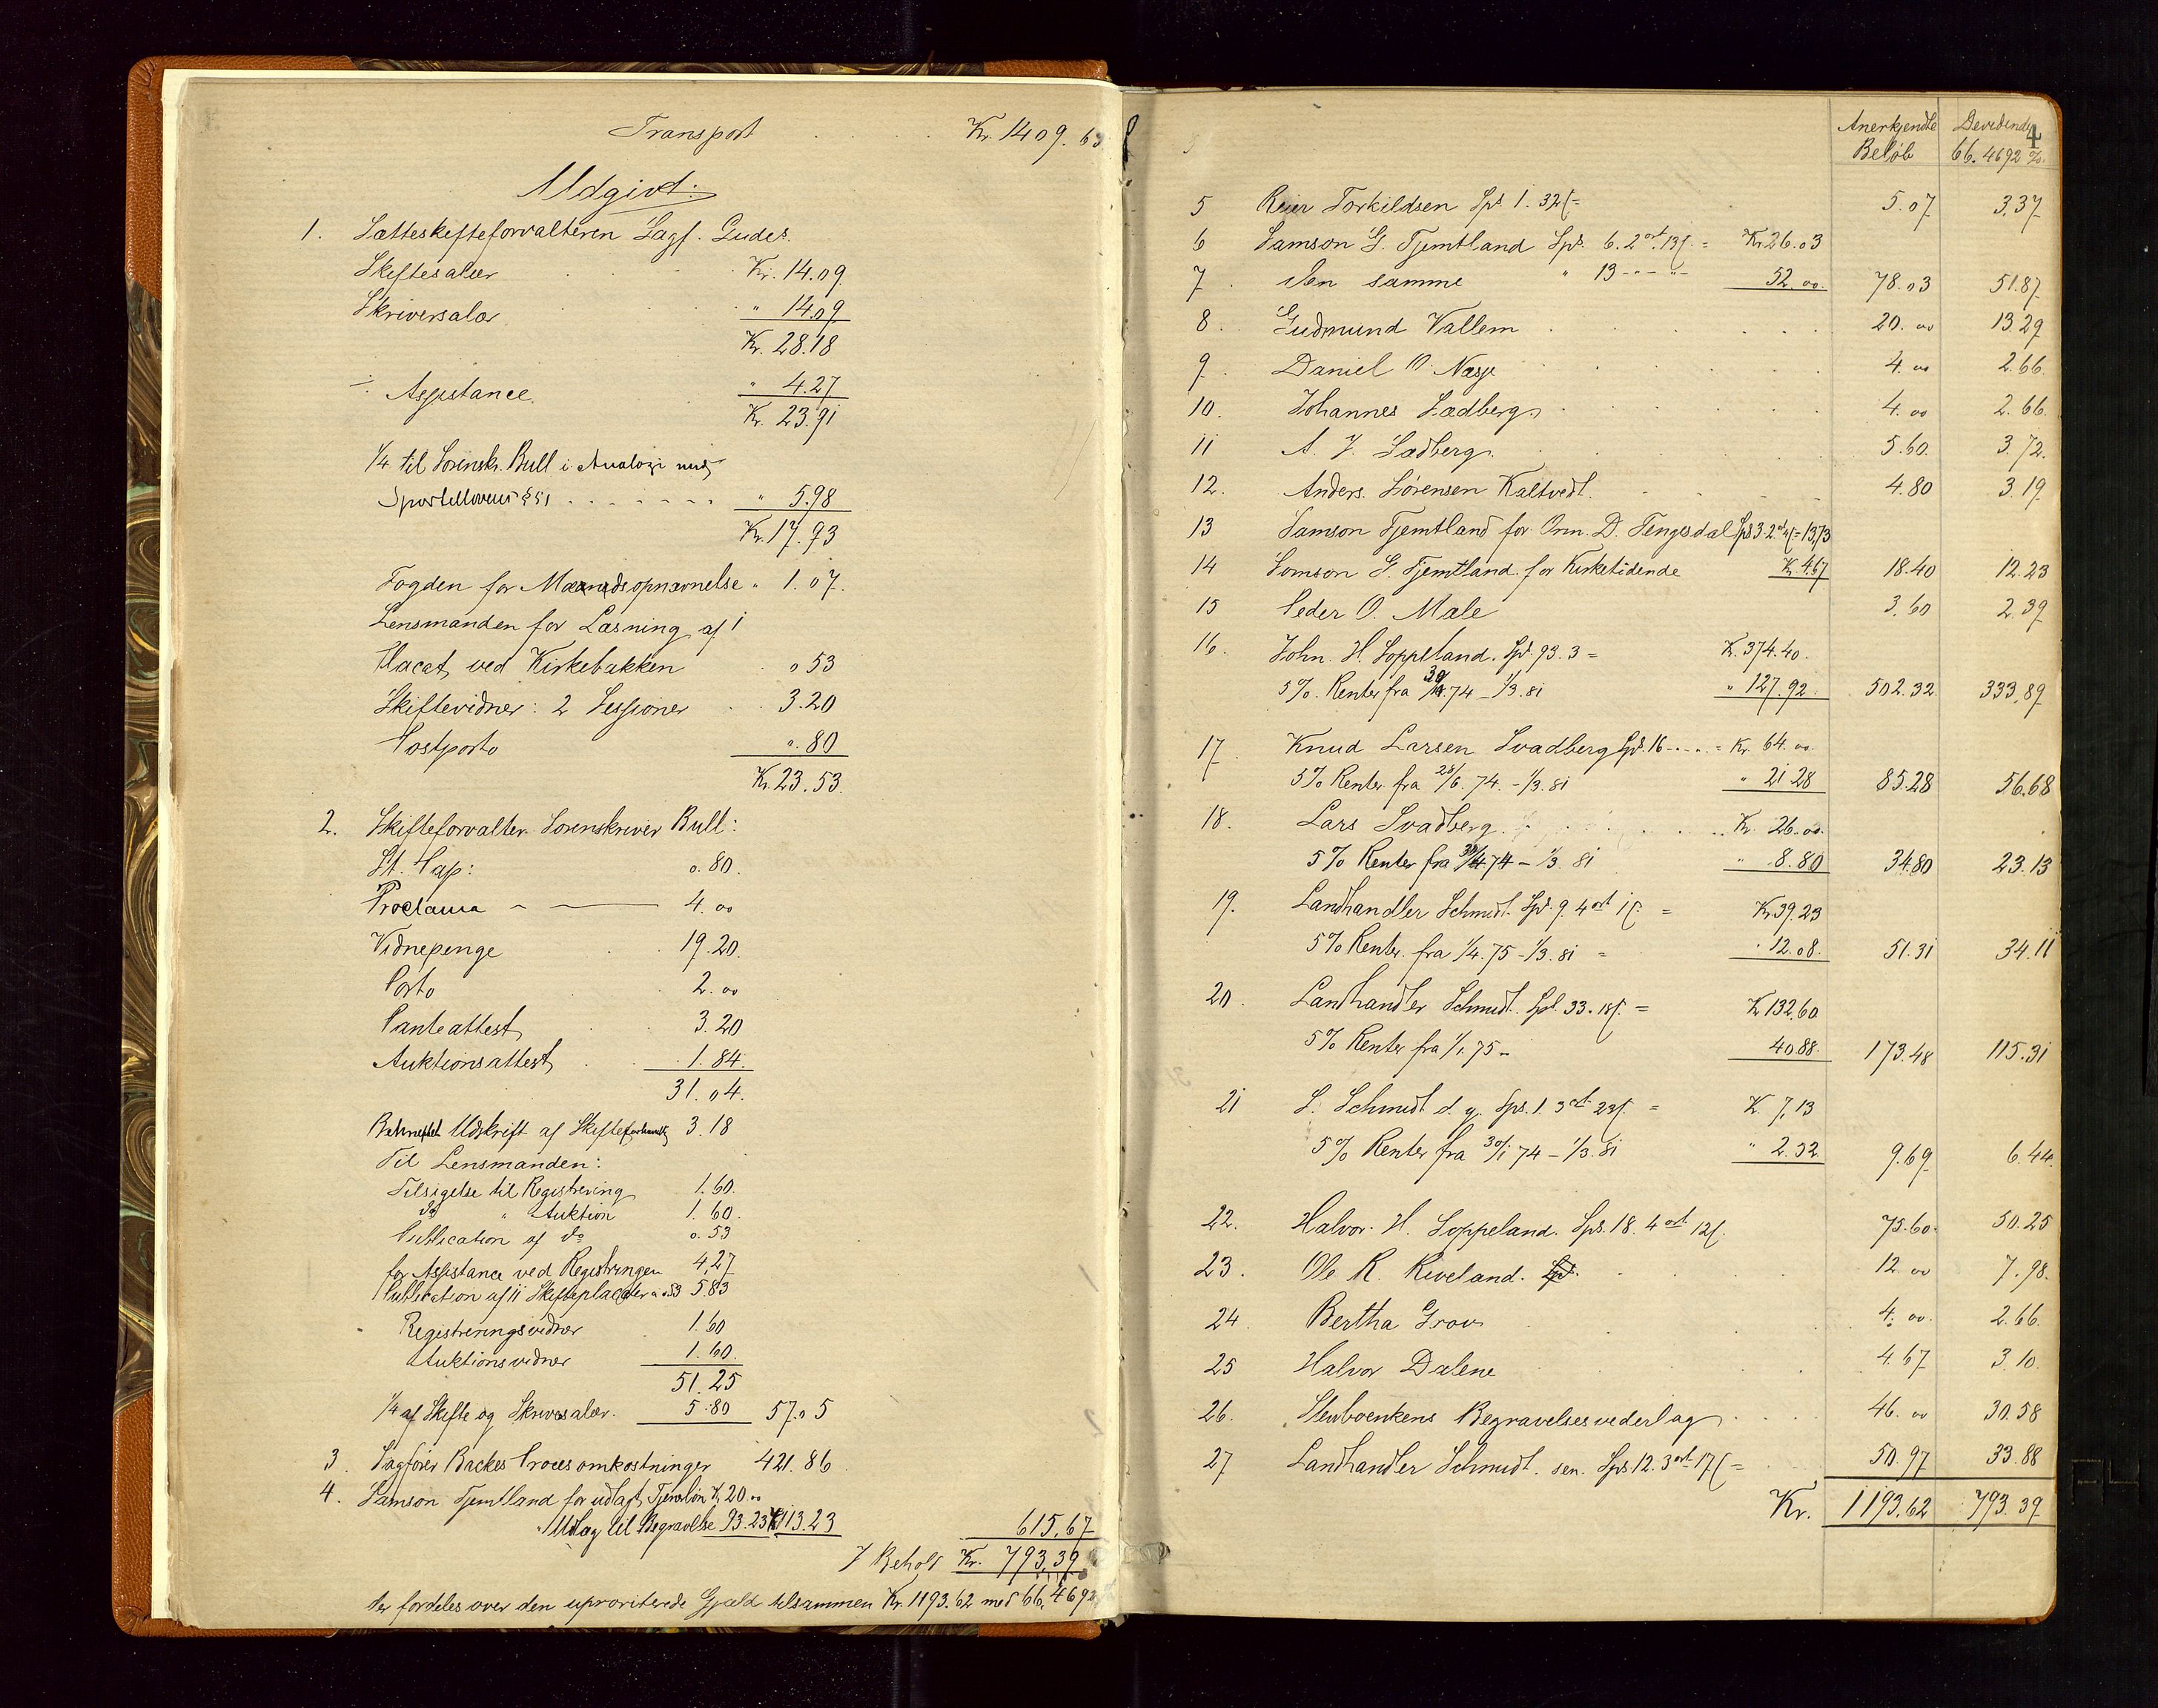 Transport . . . Kr. 1409.63
Udgivt:
1. Sætteskifteforvalteren Sagf. Gudes.
Skiftesalær . . . Kr. 14.09
Skriversalær " 14.09
Kr. 28.18
÷ Assistance. " 4.27
Kr. 23.91
1/4 til Sorenskr. Bull i Analogi med
Sportellovens § 51 . . . . . . " 5.98
Kr. 17.93
Fogden for Mændsopnævnelse " 1.07.
Lensmanden for Læsning af 1
Placat ved Kirkebakken . 0 53
Skiftevidner: 2 Sessioner . . 3.20
Postporto ". 80
Kr. 23.53.
2. Skifteforvalter Sorenskriver Bull:
St. Pap: 0.80.
Proclama - — 4.00
Vidnepenge . 19.20.
Porto . 2.00
Panteattest . 3.20
Auktionsattest . . 1.84.
31.04.
Bekræftet Udskrift af Skifteforhandlg 3.18
Til Lensmanden:
Tilsigelse til Registrering 1.60.
do " Auktion 1.60.
Publication af do 0.53
for Assistance ved Registringen 4,27
Publication af 11 Skifteplacater a 053 5.83
Registreringsvidner 1.60
Auktionsvidner 1.60.
51.25
1/4 af Skifte og Skriversalær. 5.80 57.05
3. Sagfører Backes Procesomkostninger 421.86
4. Samson Tjemtland for udlagt Tjenerløn K. 20.00
" Udlag til Begravelse 93.23 Kr 113.23 615.67
I Behold Kr. 793,39
der fordeles over den uprioriterede Gjæld tilsammen Kr. 1193.62 med 66,4692
Anerkjendte Beløb Devidende 66.4692 %
4
5 Reier Torkildsen Spd. 1. 32ſ = 5.07 3,37
6 Samson G. Tjemtland Spd. 6. 2 ort. 13ſ. = Kr. 26.03
7. den samme " 13 - - " - 52.00. 78.03 51.87
8. Gudmund Vallem . . . 20.00 13.29
9. Daniel O. Næsje . . . 4.00 2.66.
10. Johannes Ladberg . . . 4.00 2.66.
11 A. J. Ladberg . . . 5.60. 3.72.
12. Anders Sørensen Kaltvedt. . . 4.80 3.19
13 Samson Tjemtland for Orm. D. Tengesdal Spd 3. 2 ort 4ſ = 13,73
14 Samson G. Tjemtland for Kirketidende Kr 4.67 18.40 12.23
15 Peder O. Male 3,60 2.39
16. John. H. Loppeland. Spd. 93. 3 = K. 374.40.
5%. Renter fra 30/4 74 - 1/3.81 " 127.92. 502.32. 333,89
17. Knud Larsen Svadberg Spd. 16 - . . . = Kr. 64.00.
5% Renter fra 28/6. 74. - 1/3.81 " 21 28 85.28 56.68
18. Lars Svadberg . . . Kr. 26.00.
5% Renter fra 30/4 74 - 1/3 81 " 8.80 34.80 23.13
19. Landhandler Schmidt Spd. 9. 4 ort 1ſ. = Kr 39.23
5% Renter fra 1/4.75 - 1/3.81 = . 12.08. 51.31 34.11
20. Landhandler Schmidt. Spd. 33. 18ſ. = Kr 132,60
5% Renter fra 1/1. 75 - 40 88. 173.48 115.31
21 S. Schmidt d. y. Spd. 1. 3 ort 23ſ. = K. 7,13
5% Renter fra 30/1 74 - 1/3.81 " 2.32. 9.69 6.44.
22. Halvor. H. Loppeland. Spd. 18. 4 ort 12ſ. 75.60. 50.25
23. Ole R. Riveland. . . . 12 00 7.98.
24. Bertha Grov . . . 4.00. 2.66.
25 Halvor Dalene . . . 4.67 3.10.
26. Begravelsesvederlag . . . 46.00 30.58
27 Landhandler Schmidt. sen. Spd. 12. 3 ort 17ſ = 50.97 33.88
Kr. 1193.62 793.39